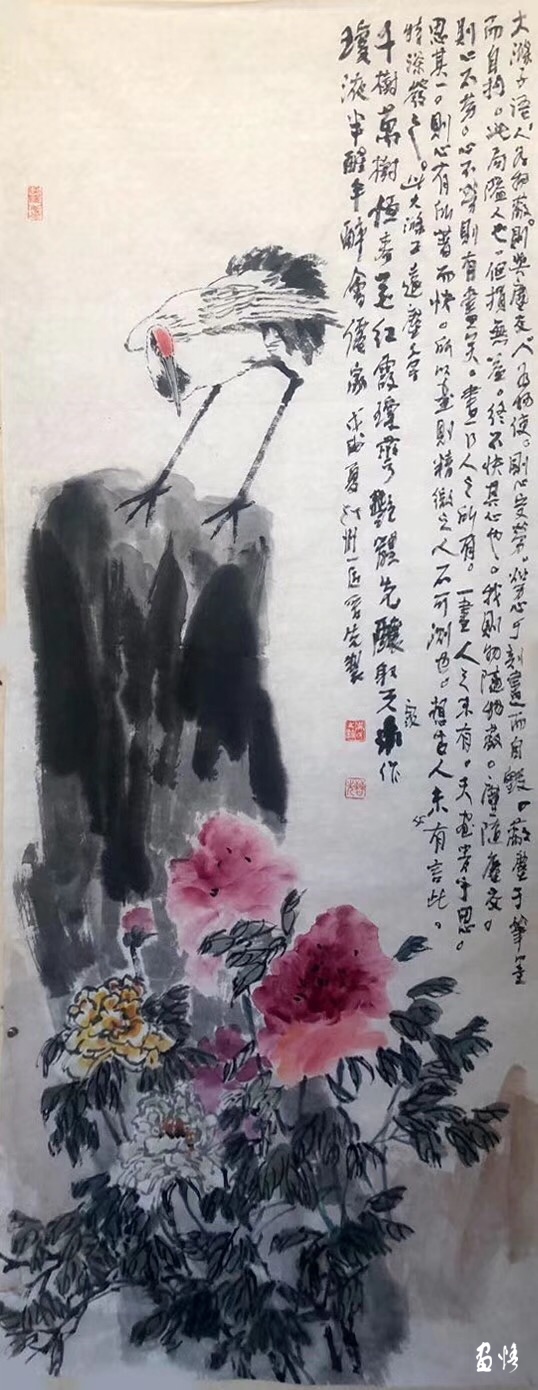 大滌子語人為物蔽。則與塵交。人為物使。則心受勞。勞心于刻畫而自毀。蔽塵于筆墨
而自拘。此局隘人也。但損無益。終不快其心也。我則物隨物蔽。塵隨塵交。
則心不勞。心不勞則有畫矣。畫乃人之所有。一畫人之未有。夫畫貴乎思。
思其一。則心有所著而快。所以畫則精微之入不可測也。想古人未必有言此。
特深發之。此大滌子遠塵章
千樹萬樹 紅霞 釀取天漿作
瓊液半醒半醉 家 戊戌夏 製